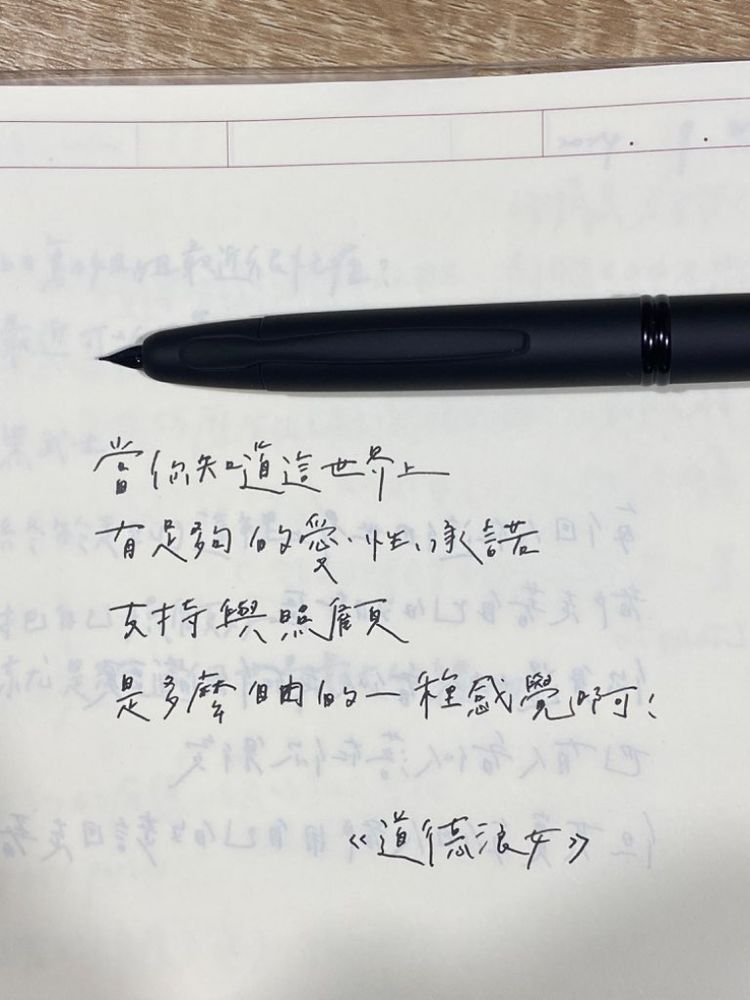 當你知道這世界上
有足夠的愛、性、承諾
支持與照顧
是多麼自由的一種感覺啊!
《道德浪女》